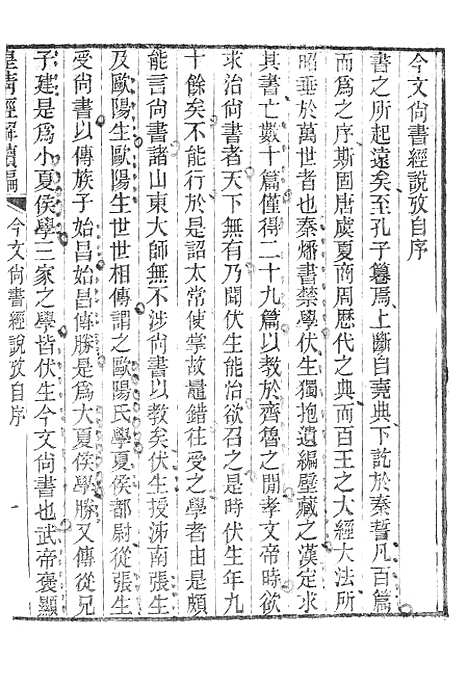 今文尚書經說攷自序
書之所起遠矣至孔子篹焉上斷自堯典下訖於秦誓凡百篇
而爲之序斯固唐虞夏商周歷代之典而百王之大經大法所
昭垂於萬世者也秦燔書禁學伏生獨抱遺編壁藏之漢定求
其書亡數十篇僅得二十九篇以教於齊魯之閒孝文帝時欲
求治尚書者天下無有乃聞伏生能治欲召之是時伏生年九
十餘矣不能行於是詔太常使掌故鼂錯往受之學者由是頗
能言尚書諸山東大師無不涉尚書以教矣伏生授泲南張生
及歐陽生歐陽生世世相傳謂之歐陽氏學夏侯都尉從張生
受尚書以傳族子始昌始昌傳勝是爲大夏侯學勝又傳從兄
子建是爲小夏侯學三家之學皆伏生今文尚書也武帝褒顯
皇清經解續編
今文尚書經說攷自序
一